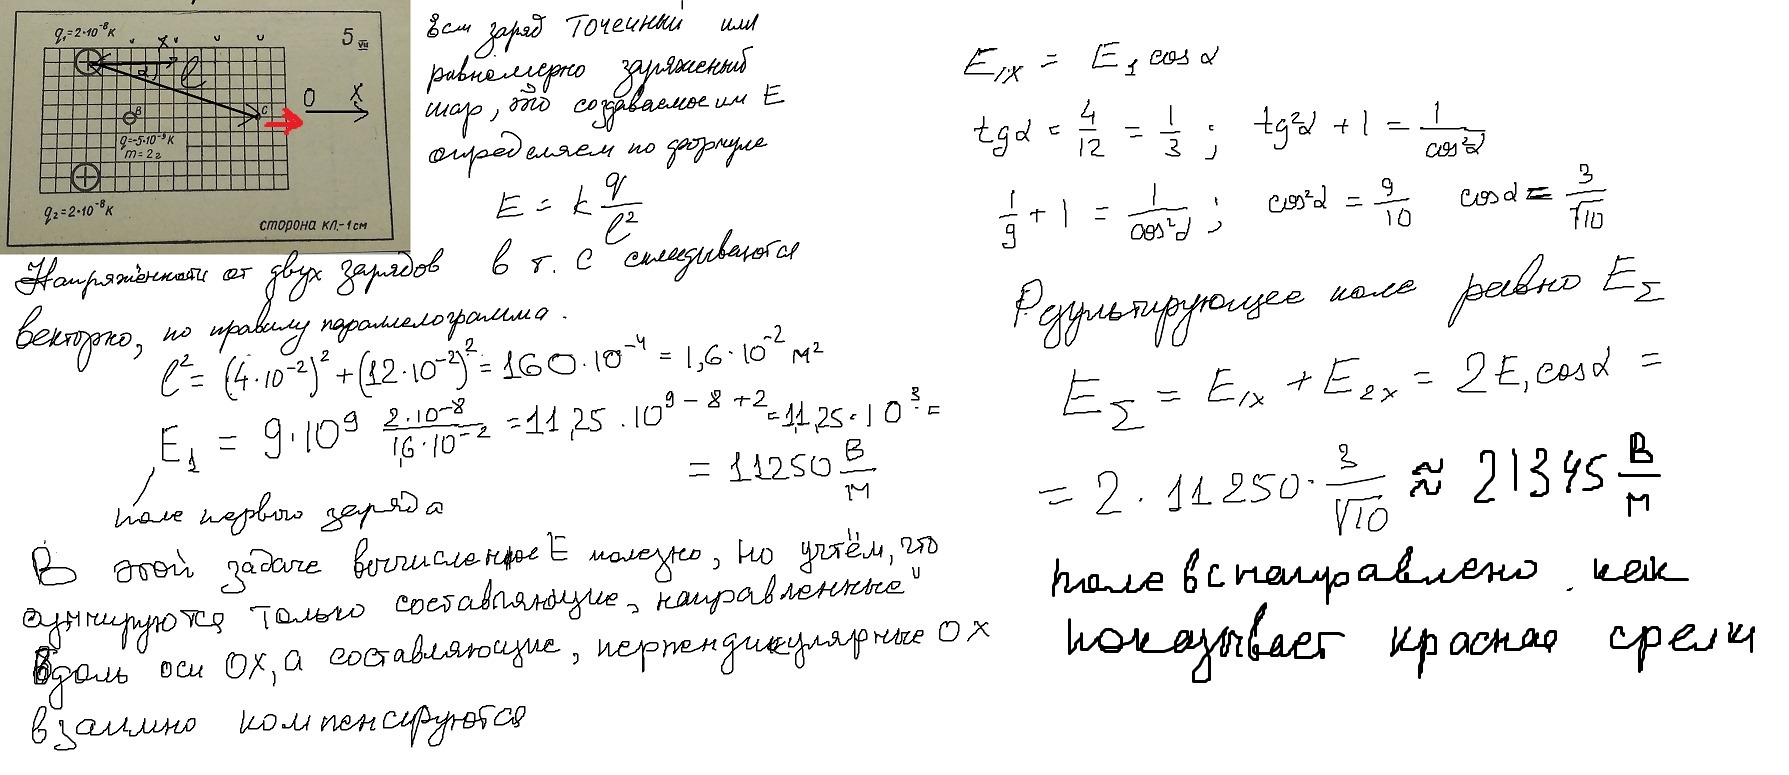 q₁=2·10⁻⁸К
5 VII
х
α
l
В
С
q=-5·10⁻⁹К
m=2г
q₂=2·10⁻⁸К
сторона кл.-1см
О Х
Если заряд точечный или
равномерно заряженный
шар, то создаваемое им E
определяем по формуле
E = k q/l²
Напряжённости от двух зарядов в т. С складываются
векторно, по правилу параллелограмма.
l² = (4·10⁻²)² + (12·10⁻²)² = 160·10⁻⁴ = 1,6·10⁻² м²
E₁ = 9·10⁹ 2·10⁻⁸/1,6·10⁻² = 11,25·10⁹⁻⁸⁺² = 11,25·10³ =
= 11250 В/м
поле первого заряда
В этой задаче вычисление E полезно, но учтём, что
суммируются только составляющие, направленные
вдоль оси ОХ, а составляющие, перпендикулярные ОХ
взаимно компенсируются
E₁ₓ = E₁ cosα
tgα = 4/12 = 1/3 ; tg²α + 1 = 1/cos²α
1/9 + 1 = 1/cos²α ; cos²α = 9/10 cosα = 3/√10
Результирующее поле равно E_Σ
E_Σ = E₁ₓ + E₂ₓ = 2E₁cosα =
= 2·11250·3/√10 ≈ 21345 В/м
поле в С направлено как
показывает красная срелка